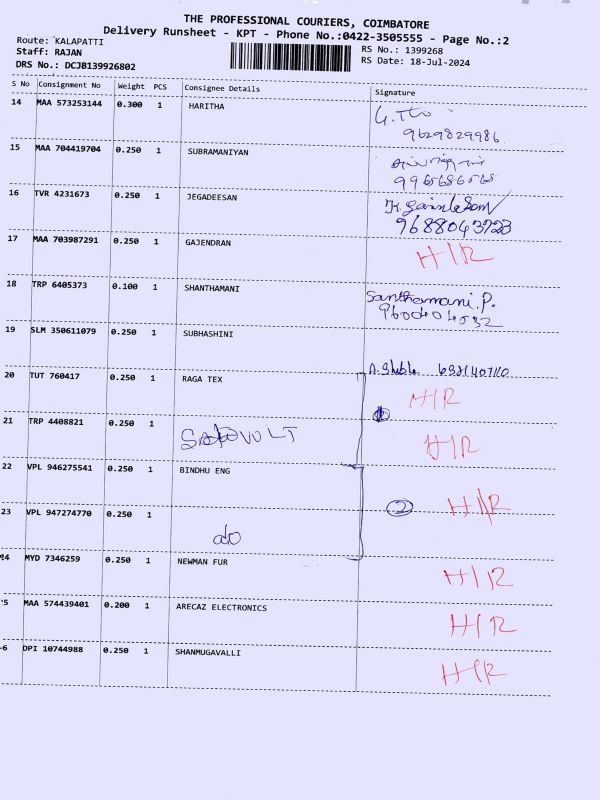 THE PROFESSIONAL COURIERS, COIMBATORE
Delivery Runsheet - KPT - Phone No.:0422-3505555 - Page No.:2
Route: KALAPATTI
Staff: RAJAN
DRS No.: DCJB139926802
RS No.: 1399268
RS Date: 18-Jul-2024
S No Consignment No Weight PCS Consignee Details Signature
14 MAA 573253144 0.300 1 HARITHA
9629829986
15 MAA 704419704 0.250 1 SUBRAMANIYAN
9965686568
16 TVR 4231673 0.250 1 JEGADEESAN
9688043723
17 MAA 703987291 0.250 1 GAJENDRAN H/R
18 TRP 6405373 0.100 1 SHANTHAMANI Santhamani.P.
9600404532
19 SLM 350611079 0.250 1 SUBHASHINI
20 TUT 760417 0.250 1 RAGA TEX H/R
1
21 TRP 4408821 0.250 1 H/R
22 VPL 946275541 0.250 1 BINDHU ENG H/R
2
23 VPL 947274770 0.250 1 do
24 MYD 7346259 0.250 1 NEWMAN FUR H/R
5 MAA 574439401 0.200 1 ARECAZ ELECTRONICS H/R
6 DPI 10744988 0.250 1 SHANMUGAVALLI H/R